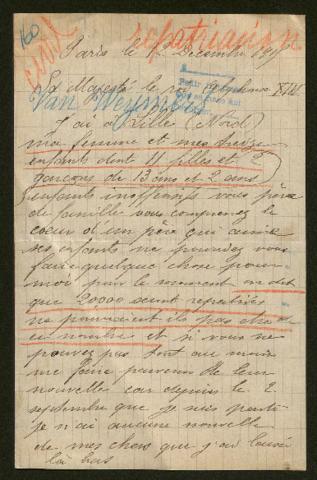 160
civil
repatriation
Paris le 12 Decembre 191
Sa Majesté le roi Alphonse XIII
J'ai à Lille (Nord)
ma femme et mes treize
enfants dont 11 filles et 2
garçons de 13 ans et 2 ans
enfants inoffensifs vous père
de famille vous comprenez le
coeur d'un père qui aime
ses enfants ne pourriez vous
faire quelque chose pour
moi pour le moment on dit
que 20,000 seront repatriés
ne pourraient ils pas etre
en nombre et si vous ne
pouvez pas tout au moins
me faire parvenir de leur
nouvelle car depuis le 2
septembre que je suis parti
je n'ai aucune nouvelle
de mes chers que j'ai laissé
là bas